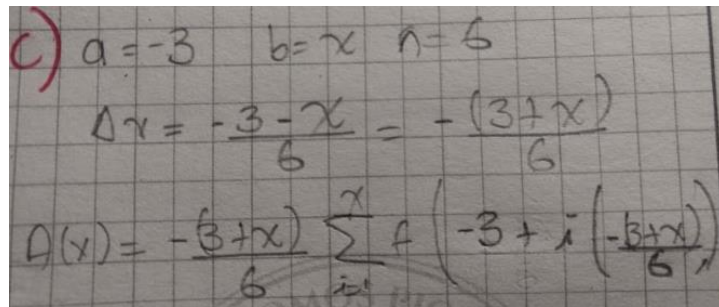 c) a = -3 b = x n = 6
Δx = -3 - x / 6 = -(3 + x) / 6
A(x) = -(3 + x) / 6 x ∑ i=1 f (-3 + i (-(3 + x) / 6))